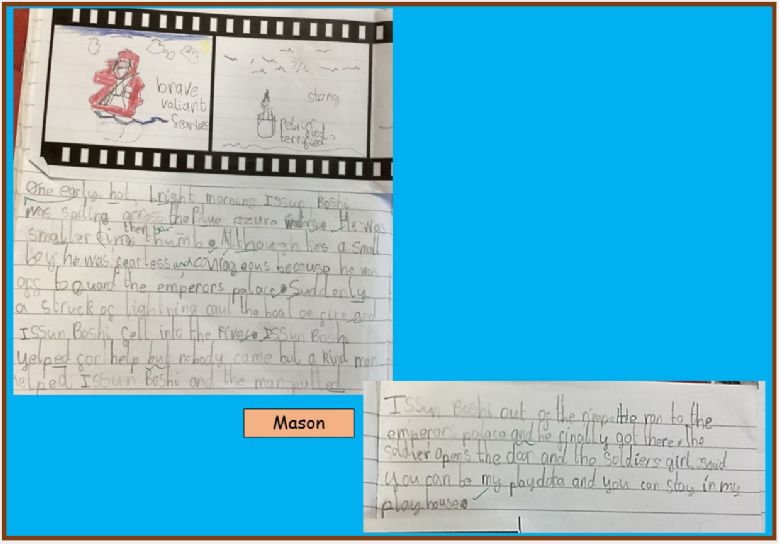 brave
valiant
fearless
stong
petrified
terrified
One early, hot, bright morning Issun Boshi
was sailing across the Blue azura He was
smaller then your thumb. Although he's a small
boy he was fearless and courageous because he was
off to guard the emperors palace. Suddenly
a struck of lightning caut the boat on fire and
Issun Boshi fell into the river. Issun Boshi
yelped for help but nobody came but a kind man
helped Issun Boshi and the man pulled
Mason
Issun Boshi out of the He ran to the
emperors palace and he finally got there. the
soldier opens the door and the soldiers girl said
you can be my playdate and you can stay in my
playhouse.